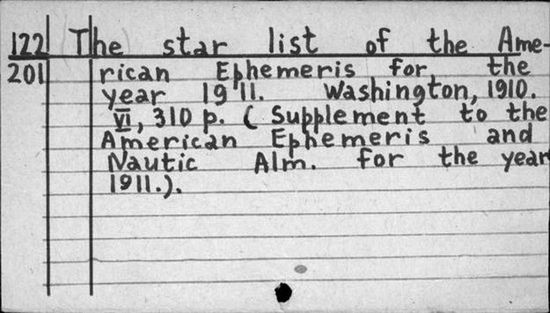 122 The star list of the Ame-
201 rican Ephemeris for the
year 1911. Washington, 1910.
VI, 310 p. ( Supplement to the
American Ephemeris and
Nautic Alm. for the year
1911.).